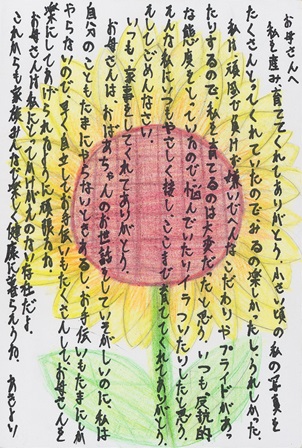 お母さんへ
私を産み育ててくれてありがとう。小さい頃の私の写真を
たくさんとってくれていたのでみるの楽しかったし、うれしかった
私は頑固で負けず嫌いでへんなこだわりやプライドがあっ
たりするので私を育てるのは大変だったと思う。いつも反抗的
な態度をとっているので悩んでいたりイラついたりしたと思う。
そんな私にいつもやさしく接し、ここまで育ててくれてありがとう。
そしてごめんなさい。
いつも家事をしてくれてありがとう。
お母さんは、おばあちゃんのお世話をしていそがしいのに、私は
自分のこともたまにやらないときある。お手伝いもたまにしか
やらないので、早く自立してお手伝いもたくさんして、お母さんを
楽にしてあげられるように頑張るね。
お母さんは私にとってかけがえのない存在だよ。
これからも家族みんなで楽しく健康に暮らそうね。 あきより